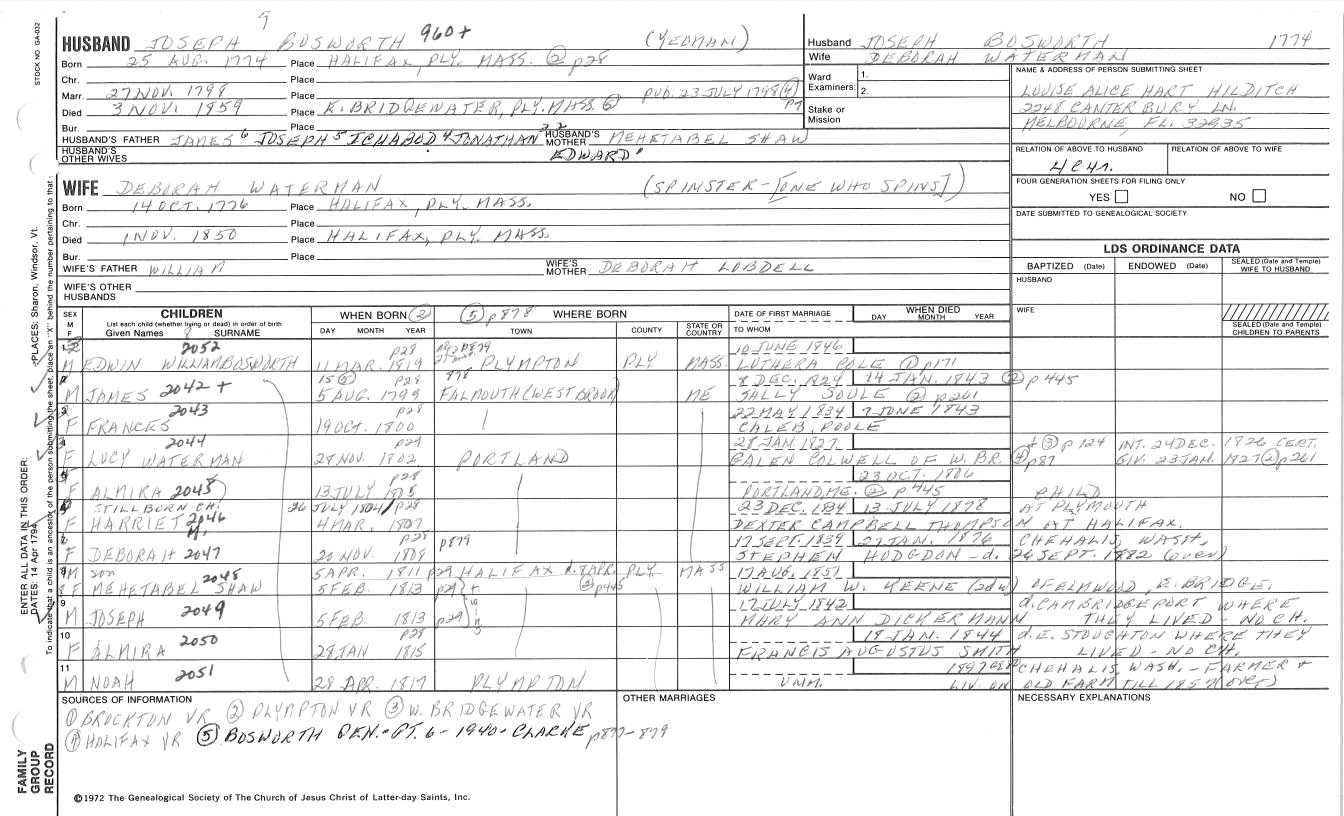 STOCK NO. GA-032
HUSBAND JOSEPH 7 BOSWORTH 960+ (YEOMAN)
Born 25 AUG. 1774 Place HALIFAX, PLY. MASS. ② p28
Chr. Place
Marr. 27 NOV. 1798 Place PUB. 23 JULY 1798 ④ p7
Died 3 NOV. 1859 Place E. BRIDGEWATER, PLY. MASS.
Bur. Place
HUSBAND'S FATHER JAMES 6 JOSEPH 5 ICHABOD 4 JONATHAN 3 2 HUSBAND'S MOTHER MEHETABEL SHAW
EDWARD 1
HUSBAND'S OTHER WIVES
Husband JOSEPH BOSWORTH 1774
Wife DEBORAH WATERMAN
Ward Examiners: 1.
2.
Stake or Mission
NAME & ADDRESS OF PERSON SUBMITTING SHEET
LOUISE ALICE HART HILDITCH
2248 CANTERBURY LN.
MELBOURNE, FL. 32935
RELATION OF ABOVE TO HUSBAND RELATION OF ABOVE TO WIFE
FOUR GENERATION SHEETS FOR FILING ONLY
YES NO
DATE SUBMITTED TO GENEALOGICAL SOCIETY
WIFE DEBORAH WATERMAN (SPINSTER-[ONE WHO SPINS])
Born 14 OCT. 1776 Place HALIFAX, PLY. MASS.
Chr. Place
Died 1 NOV. 1850 Place HALIFAX, PLY. MASS.
Bur. Place
WIFE'S FATHER WILLIAM WIFE'S MOTHER DEBORAH LOBDELL
WIFE'S OTHER HUSBANDS
LDS ORDINANCE DATA
BAPTIZED (Date) ENDOWED (Date) SEALED (Date and Temple) WIFE TO HUSBAND
HUSBAND
WIFE
SEALED (Date and Temple) CHILDREN TO PARENTS
SEX M F CHILDREN List each child (whether living or dead) in order of birth Given Names 8 SURNAME
WHEN BORN ② DAY MONTH YEAR
⑤ p878 WHERE BORN TOWN COUNTY STATE OR COUNTRY
DATE OF FIRST MARRIAGE TO WHOM
WHEN DIED DAY MONTH YEAR
2052 p28 p879 10 JUNE 1846
M EDWIN WILLIAM BOSWORTH 11 MAR. 1819 PLYMPTON PLY MASS. LUTHERA POLE ① p171
15 ⑤ p28 878 8 DEC. 1824 14 JAN. 1843 ② p445
M JAMES 2042+ 5 AUG. 1799 FALMOUTH (WEST BROOK) ME SALLY SOULE ② p261
2043 p28 22 MAY 1834 7 JUNE 1843
F FRANCES 19 OCT. 1800 CALEB POOLE
2044 p29 28 JAN. 1827 + ③ p124 INT. 24 DEC. 1826 CERT.
F LUCY WATERMAN 28 NOV. 1802 PORTLAND GALEN COLWELL OF W. BR. ④ p87 GIV. 23 JAN. 1827 ② p261
p28 23 OCT. 1806
F ALMIRA 2045 13 JULY 1805 PORTLAND, ME. ② p445 CHILD
STILLBORN CH. 26 JULY 1804 p28 23 DEC. 1834 13 JULY 1878 AT PLYMOUTH
F HARRIET 2046 4 MAR. 1807 DEXTER CAMPBELL THOMPSON AT HALIFAX.
M. p879 17 SEPT. 1839 27 JAN. 1876 CHEHALIS, WASH.
F DEBORAH 2047 20 NOV. 1808 STEPHEN HODGDON - d. 26 SEPT. 1882 (over)
M son 5 APR. 1811 p29 HALIFAX d. 8 APR. PLY MASS 17 AUG. 1851
8 F MEHETABEL SHAW 2048 5 FEB. 1813 p29 ② p445 WILLIAM W. KEENE (2d w) OF ELMWOOD, E. BRIDGE.
9 17 JULY 1842 d. CAMBRIDGEPORT WHERE
M JOSEPH 2049 5 FEB. 1813 p29 MARY ANN DICKERMANN THEY LIVED - NO CH.
10 p28 18 JAN. 1844 d. E. STOUGHTON WHERE THEY
F ALMIRA 2050 28 JAN 1815 FRANCIS AUGUSTUS SMITH LIVED - NO CH.
11 1897 CHEHALIS, WASH. - FARMER +
M NOAH 2051 28 APR. 1817 PLYMPTON UNM. LIV. ON OLD FARM TILL 1857 (over)
SOURCES OF INFORMATION OTHER MARRIAGES NECESSARY EXPLANATIONS
① BROCKTON VR ② PLYMPTON VR ③ W. BRIDGEWATER VR
④ HALIFAX VR ⑤ BOSWORTH GEN. - PT. 6 - 1940 - CLARKE p877-879
©1972 The Genealogical Society of The Church of Jesus Christ of Latter-day Saints, Inc.
FAMILY GROUP RECORD
ENTER ALL DATA IN THIS ORDER:
DATES: 14 Apr 1794 PLACES: Sharon, Windsor, Vt.
To indicate that a child is an ancestor of the person submitting the sheet, place an "X" behind the number pertaining to that